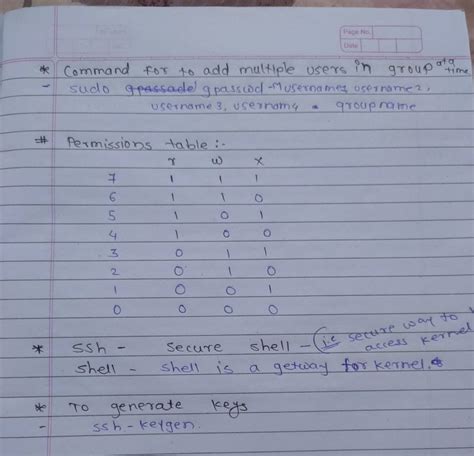 Page No.
Date
* Command for to add multiple users in group at a time
- sudo gpasswd -M username1, username2,
username3, username4 groupname
# Permissions table :-
r w x
7 1 1 1
6 1 1 0
5 1 0 1
4 1 0 0
3 0 1 1
2 0 1 0
1 0 0 1
0 0 0 0
* ssh - secure shell - (ie secure way to access kernel
shell - shell is a getway for kernel.
* To generate keys
- ssh-keygen.